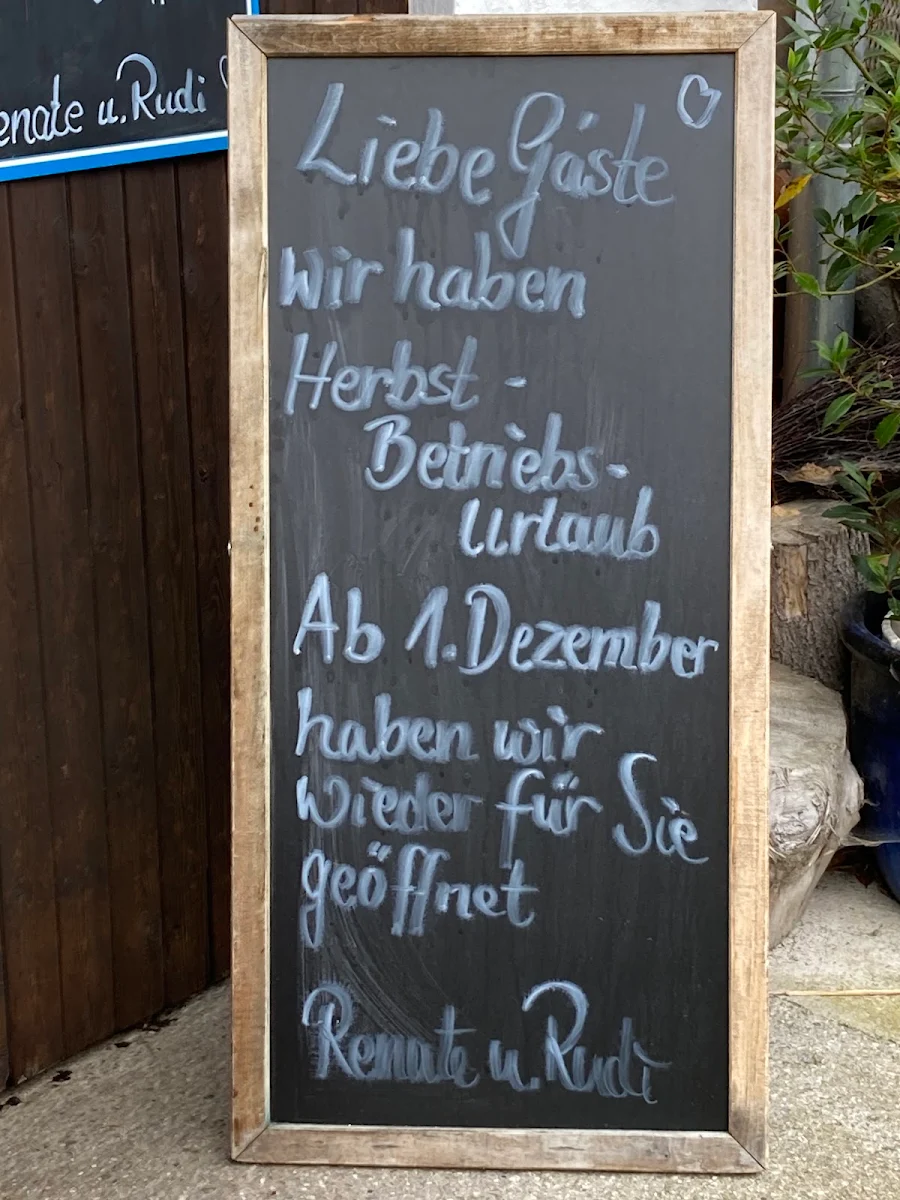 enate u. Rudi
Liebe Gäste
wir haben
Herbst-
Betriebs-
Urlaub
Ab 1. Dezember
haben wir
wieder für Sie
geöffnet
Renate u. Rudi